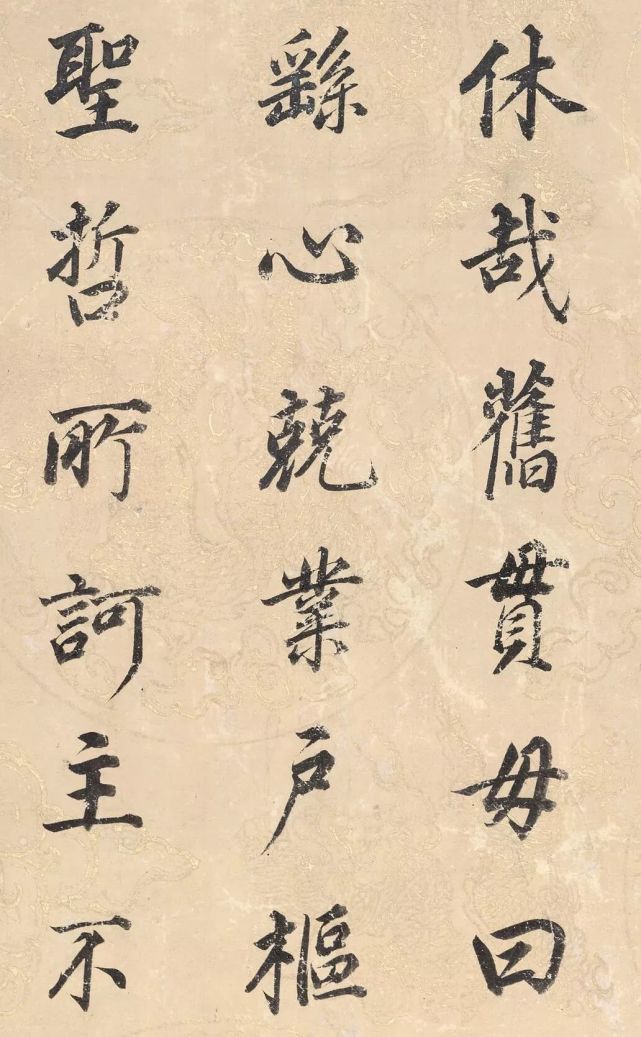 休哉舊貫毋曰
繇心兢業户樞
聖哲所訶主不